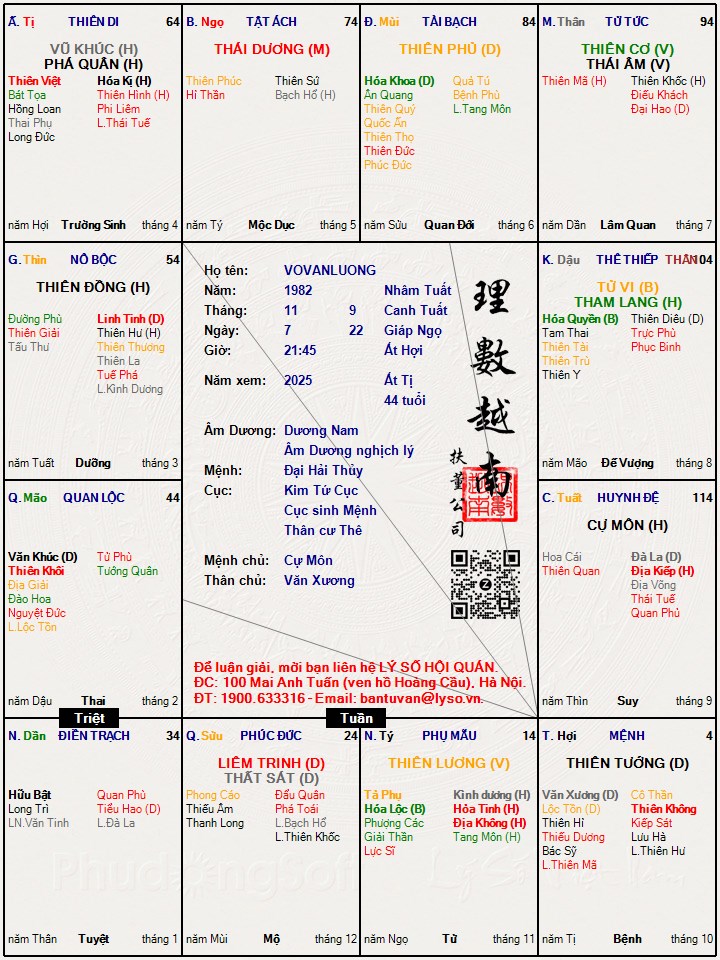 Ấ. Tị THIÊN DI 64
VŨ KHÚC (H)
PHÁ QUÂN (H)
Thiên Việt Hóa Kị (H)
Bát Tọa Thiên Hình (H)
Hồng Loan Phi Liêm
Thai Phụ L.Thái Tuế
Long Đức
năm Hợi Trường Sinh tháng 4
B. Ngọ TẬT ÁCH 74
THÁI DƯƠNG (M)
Thiên Phúc Thiên Sứ
Hỉ Thần Bạch Hổ (H)
năm Tý Mộc Dục tháng 5
Đ. Mùi TÀI BẠCH 84
THIÊN PHỦ (D)
Hóa Khoa (D) Quả Tú
Ân Quang Bệnh Phù
Thiên Quý L.Tang Môn
Quốc Ấn
Thiên Thọ
Thiên Đức
Phúc Đức
năm Sửu Quan Đới tháng 6
M. Thân TỬ TỨC 94
THIÊN CƠ (V)
THÁI ÂM (V)
Thiên Mã (H) Thiên Khốc (H)
Điếu Khách
Đại Hao (D)
năm Dần Lâm Quan tháng 7
G. Thìn NÔ BỘC 54
THIÊN ĐỒNG (H)
Đường Phù Linh Tinh (D)
Thiên Giải Thiên Hư (H)
Tấu Thư Thiên Thương
Thiên La
Tuế Phá
L.Kình Dương
năm Tuất Dưỡng tháng 3
Họ tên: VOVANLUONG
Năm: 1982 Nhâm Tuất
Tháng: 11 9 Canh Tuất
Ngày: 7 22 Giáp Ngọ
Giờ: 21:45 Ất Hợi
Năm xem: 2025 Ất Tị
44 tuổi
Âm Dương: Dương Nam
Âm Dương nghịch lý
Mệnh: Đại Hải Thủy
Cục: Kim Tứ Cục
Cục sinh Mệnh
Thân cư Thê
Mệnh chủ: Cự Môn
Thân chủ: Văn Xương
理數越南
扶董公司
Để luận giải, mời bạn liên hệ LÝ SỐ HỘI QUÁN.
ĐC: 100 Mai Anh Tuấn (ven hồ Hoàng Cầu), Hà Nội.
ĐT: 1900.633316 - Email: bantuvan@lyso.vn.
K. Dậu THÊ THIẾP THÂN 104
TỬ VI (B)
THAM LANG (H)
Hóa Quyền (B) Thiên Diêu (D)
Tam Thai Trực Phù
Thiên Tài Phục Binh
Thiên Trù
Thiên Y
năm Mão Đế Vượng tháng 8
Q. Mão QUAN LỘC 44
Văn Khúc (D) Tử Phù
Thiên Khôi Tướng Quân
Địa Giải
Đào Hoa
Nguyệt Đức
L.Lộc Tồn
năm Dậu Thai tháng 2
C. Tuất HUYNH ĐỆ 114
CỰ MÔN (H)
Hoa Cái Đà La (D)
Thiên Quan Địa Kiếp (H)
Địa Võng
Thái Tuế
Quan Phủ
năm Thìn Suy tháng 9
Triệt
Tuần
N. Dần ĐIỀN TRẠCH 34
Hữu Bật Quan Phù
Long Trì Tiểu Hao (D)
LN.Văn Tinh L.Đà La
năm Thân Tuyệt tháng 1
Q. Sửu PHÚC ĐỨC 24
LIÊM TRINH (D)
THẤT SÁT (D)
Phong Cáo Đẩu Quân
Thiếu Âm Phá Toái
Thanh Long L.Bạch Hổ
L.Thiên Khốc
năm Mùi Mộ tháng 12
N. Tý PHỤ MẪU 14
THIÊN LƯƠNG (V)
Tả Phụ Kình dương (H)
Hóa Lộc (B) Hỏa Tinh (H)
Phượng Các Địa Không (H)
Giải Thần Tang Môn (H)
Lực Sĩ
năm Ngọ Tử tháng 11
T. Hợi MỆNH 4
THIÊN TƯỚNG (D)
Văn Xương (D) Cô Thần
Lộc Tồn (D) Thiên Không
Thiên Hỉ Kiếp Sát
Thiếu Dương Lưu Hà
Bác Sỹ L.Thiên Hư
L.Thiên Mã
năm Tị Bệnh tháng 10